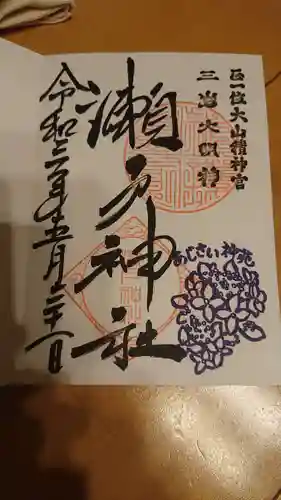 正一位大山積神宮
三嶋大明神
瀬戸神社
あじさい神苑
令和三年五月二十一日